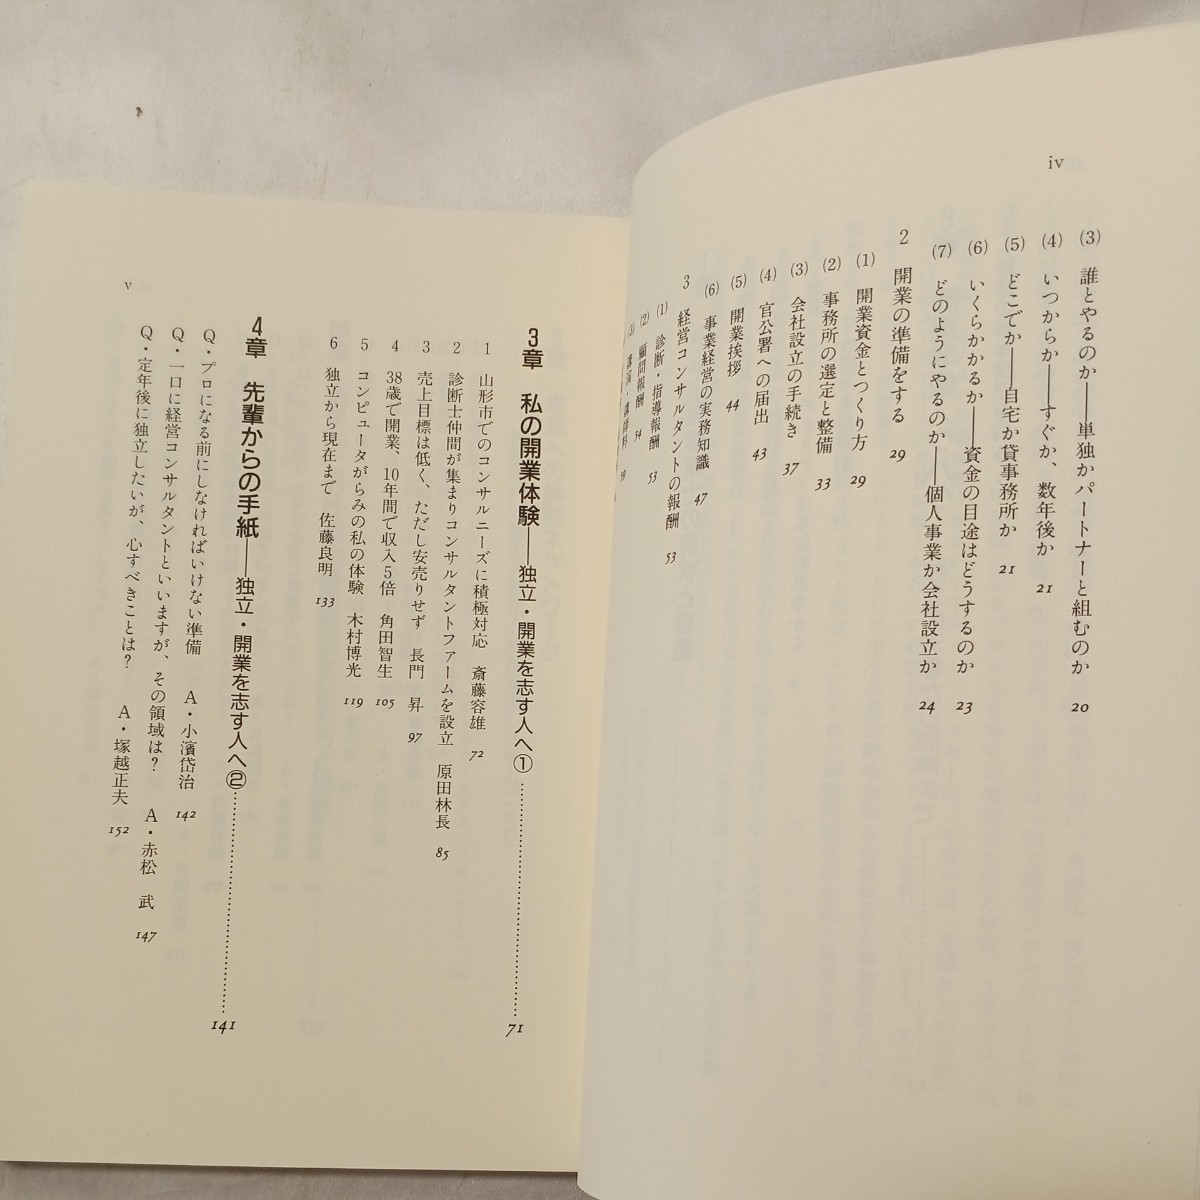 iv
(3) 誰とやるのか——単独かパートナーと組むのか 20
(4) いつからか——すぐか、数年後か 21
(5) どこでか——自宅か貸事務所か 21
(6) いくらかかるか——資金の目途はどうするのか 23
(7) どのようにやるのか——個人事業か会社設立か 24
2 開業の準備をする 29
(1) 開業資金とつくり方 29
(2) 事務所の選定と整備 33
(3) 会社設立の手続き 37
(4) 官公署への届出 43
(5) 開業挨拶 44
(6) 事業経営の実務知識 47
3 経営コンサルタントの報酬 53
(1) 診断・指導報酬 53
(2) 顧問報酬 54
(3) 講演・講師料 59
3章 私の開業体験——独立・開業を志す人へ① 71
1 山形市でのコンサルニーズに積極対応 斎藤容雄 72
2 診断士仲間が集まりコンサルタントファームを設立 原田林長 85
3 売上目標は低く、ただし安売りせず 長門 昇 97
4 38歳で開業、10年間で収入5倍 角田智生 105
5 コンピュータがらみの私の体験 木村博光 119
6 独立から現在まで 佐藤良明 133
4章 先輩からの手紙——独立・開業を志す人へ② 141
Q・プロになる前にしなければいけない準備 A・小濱岱治 142
Q・一口に経営コンサルタントといいますが、その領域は? A・赤松 武 147
Q・定年後に独立したいが、心すべきことは? A・塚越正夫 152
v